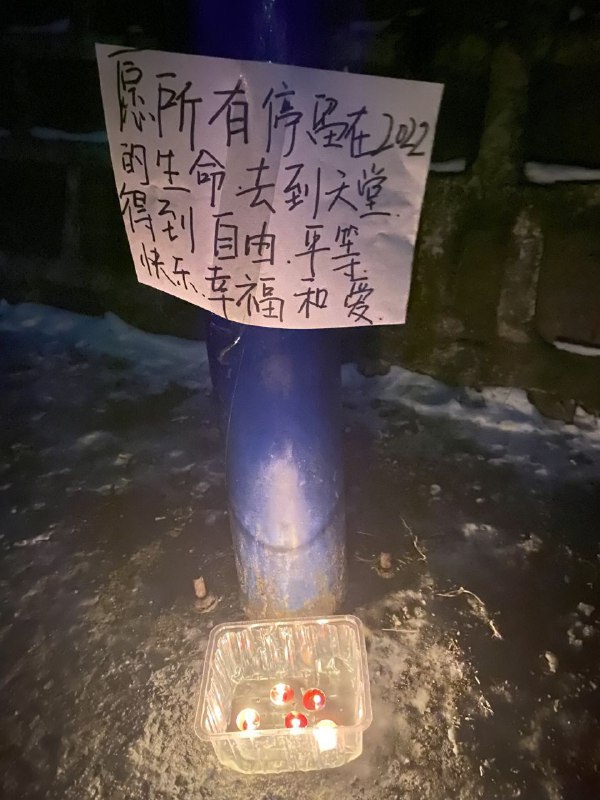 愿所有停留在2022
的生命去到天堂.
得到自由.平等.
快乐.幸福和爱.